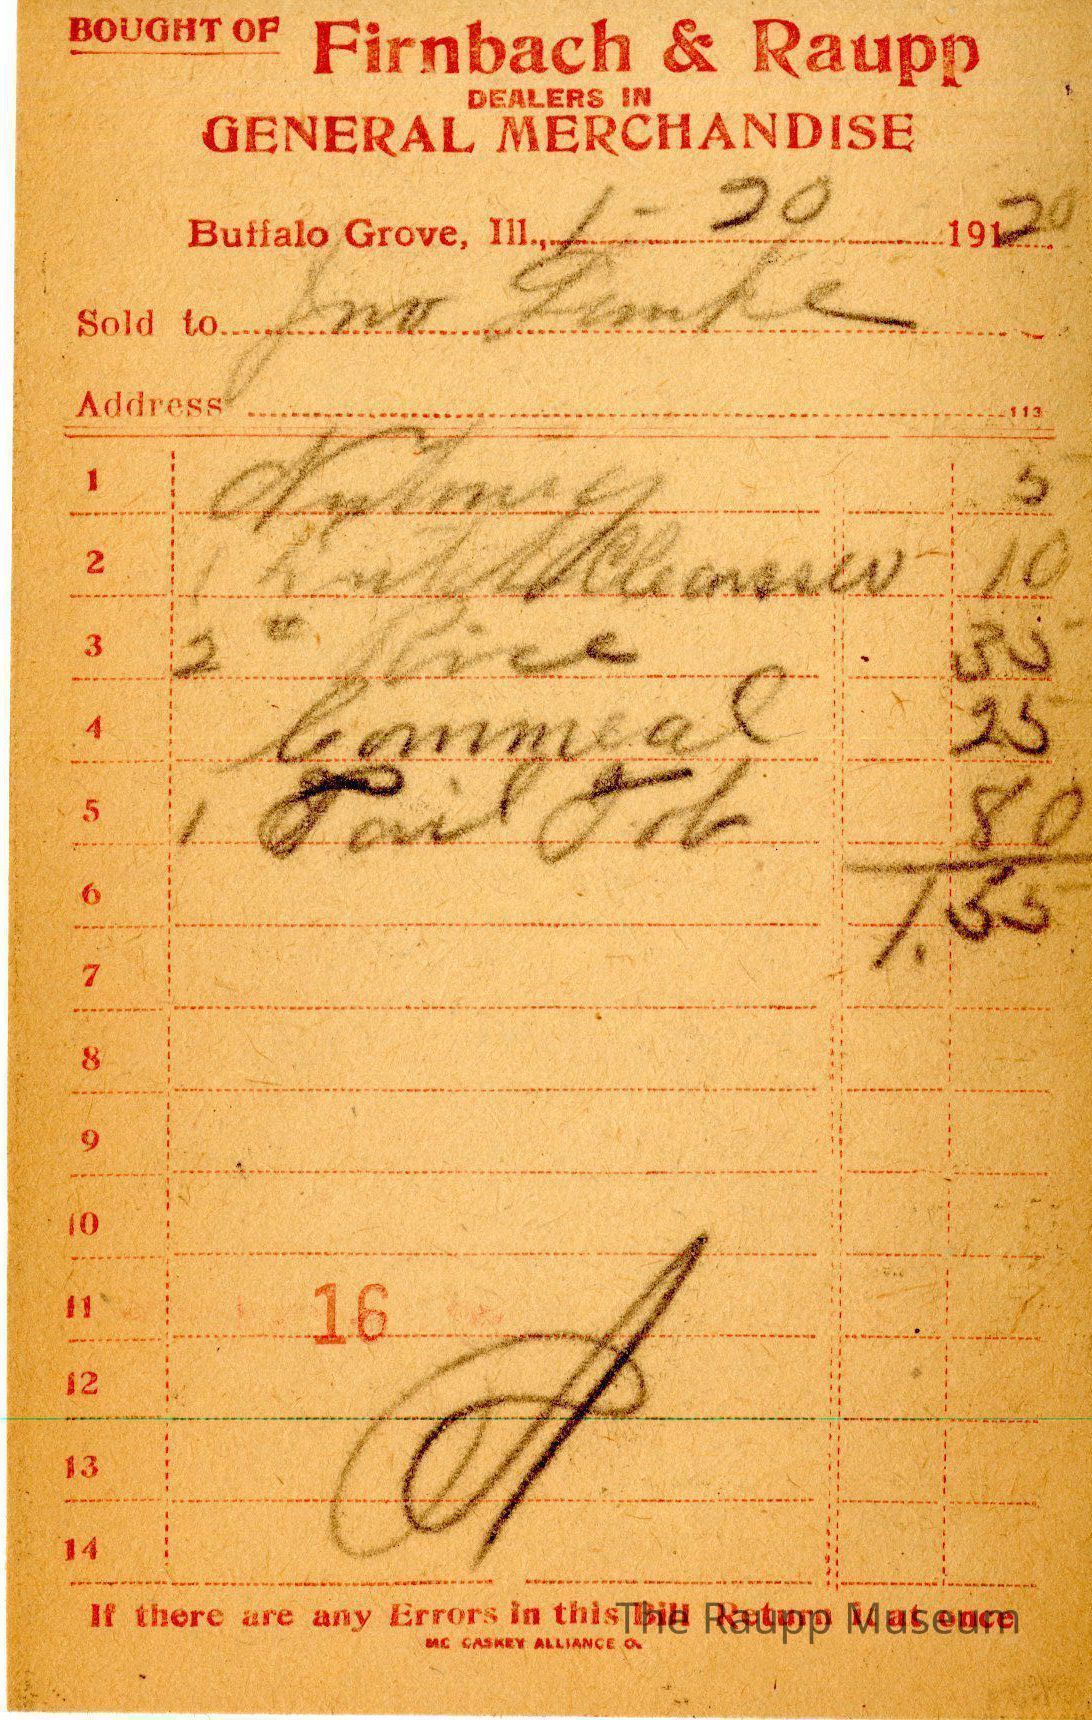 BOUGHT OF Firnbach & Raupp
DEALERS IN
GENERAL MERCHANDISE
Buffalo Grove, Ill., 1-20 191 20
Sold to Jno
Address 113
1 Nutmeg 5
2 1 Cleanser 10
3 2 " Rice 35
4 Cornmeal 25
5 1 Pail 80
6 1.55
7
8
9
10
11 16
12
13
14
If there are any Errors in this Bill Return it at once
MC CASKEY ALLIANCE O.
The Raupp Museum